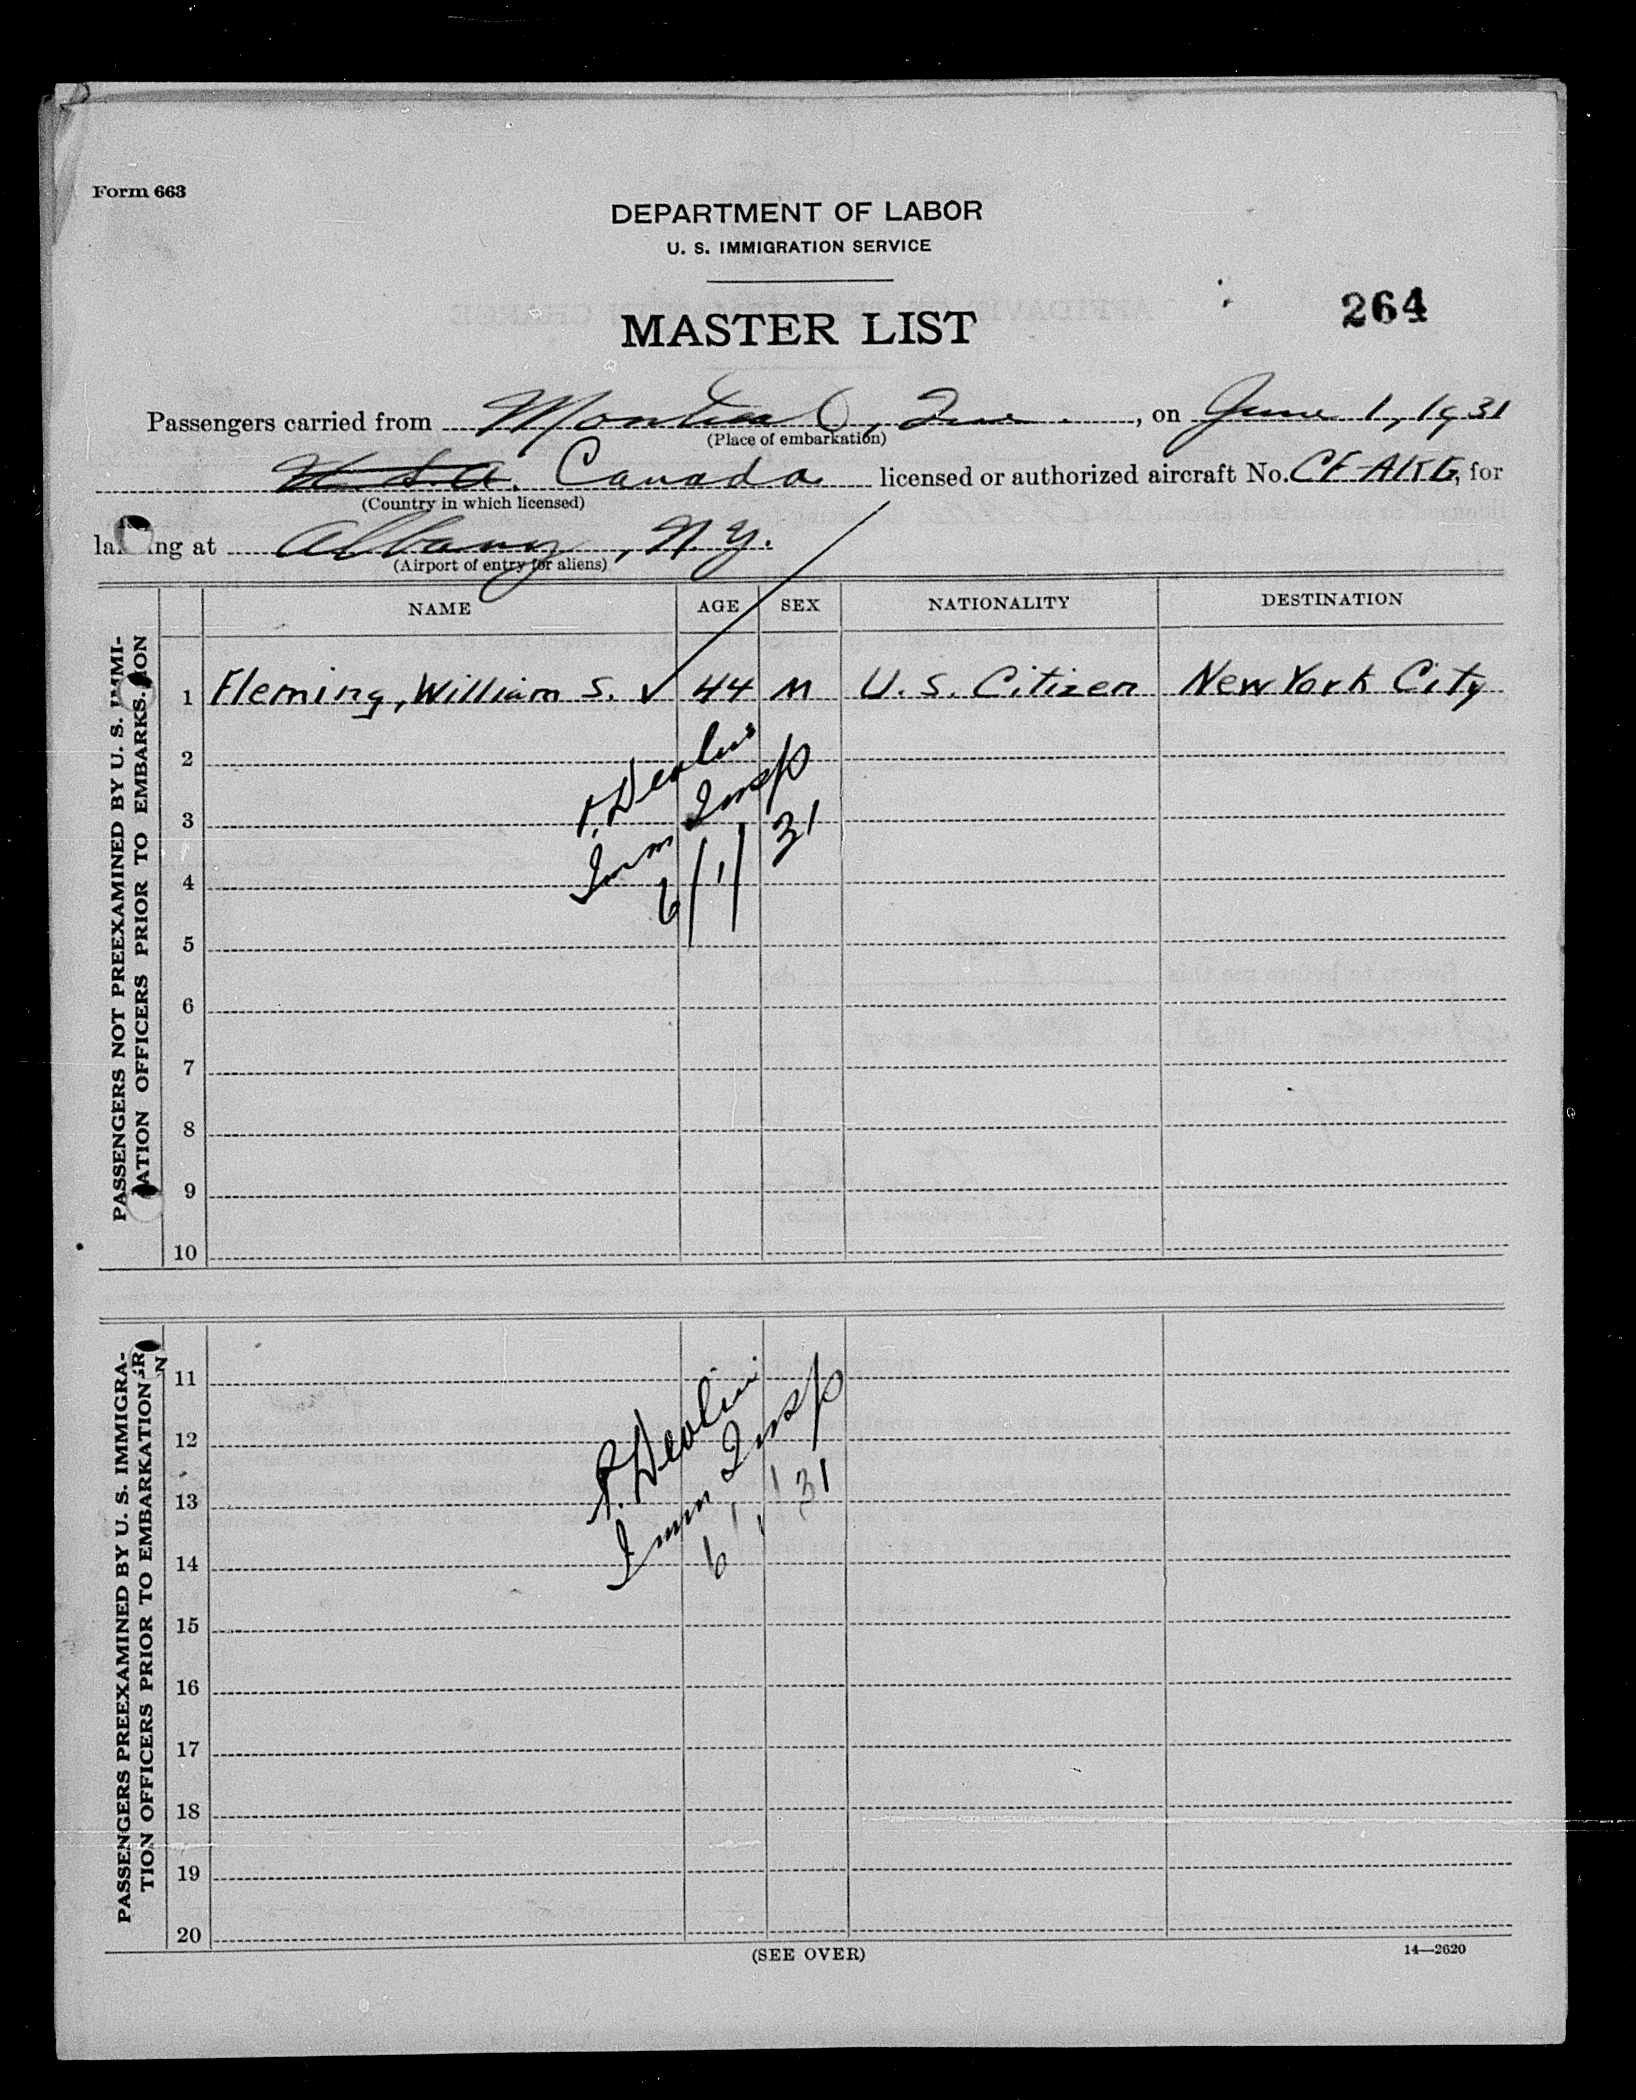 Form 663
DEPARTMENT OF LABOR
U. S. IMMIGRATION SERVICE
264
MASTER LIST
Passengers carried from Montreal, Que., on June 1, 1931
(Place of embarkation)
U.S.A. Canada licensed or authorized aircraft No. CF-AKG, for
(Country in which licensed)
landing at Albany, N.Y.
(Airport of entry for aliens)
NAME AGE SEX NATIONALITY DESTINATION
PASSENGERS NOT PREEXAMINED BY U. S. IMMI-
ATION OFFICERS PRIOR TO EMBARKS. ION
1 Fleming, William S. ✓ 44 M U.S. Citizen New York City
2
3
4
5
6
7
8
9
10
P. Devlin
Imm Insp
6/1/31
PASSENGERS PREEXAMINED BY U. S. IMMIGRA-
TION OFFICERS PRIOR TO EMBARKATION
11
12
13
14
15
16
17
18
19
20
P. Devlin
Imm Insp
6/1/31
(SEE OVER)
14—2620